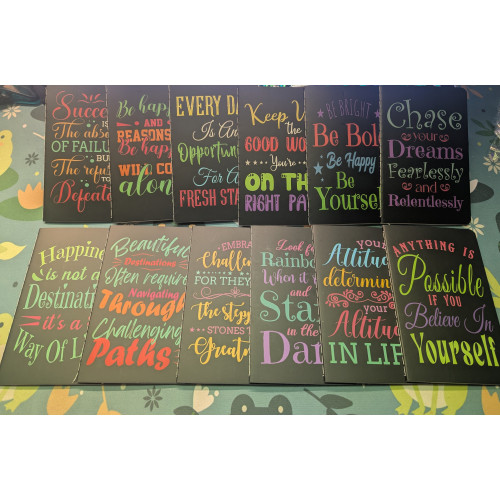 Success
IS
The abse
OF FAILU
BUT
The refu
TO
Defeate
Be happ
AND
REASON
Be happ
WILL CO
alon
EVERY DA
Is An
Opportun
For A
FRESH STA
Keep U
the
GOOD WOR
You're
ON TH
RIGHT PA
BE BRIGHT
Be Bol
Be Happy
Be
Yoursel
Chase
your
Dreams
Fearlessly
and
Relentlessly
Happine
is not a
Destinati
it's a
Way Of L
Beautiful
Destinations
Often requir
Navigating
Through
Challenging
Paths
EMBRA
Challen
FOR THEY
The Stepp
STONES T
Greatn
Look fo
Rainbow
When it
and
Sta
in the
Dar
YOUR
Attitud
determin
your
Attitud
IN LIF
ANYTHING IS
Possible
IF YOU
Believe In
Yourself